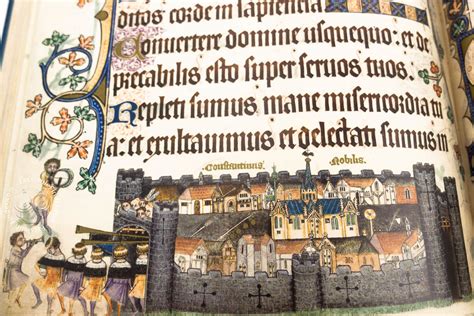 ditos corde in sapientia
Convertere domine usquequo: et de
precabilis esto super seruos tuos.
Repleti sumus mane misericordia tu
a: et exultauimus et delectati sumus in
Constantinus Nobilis